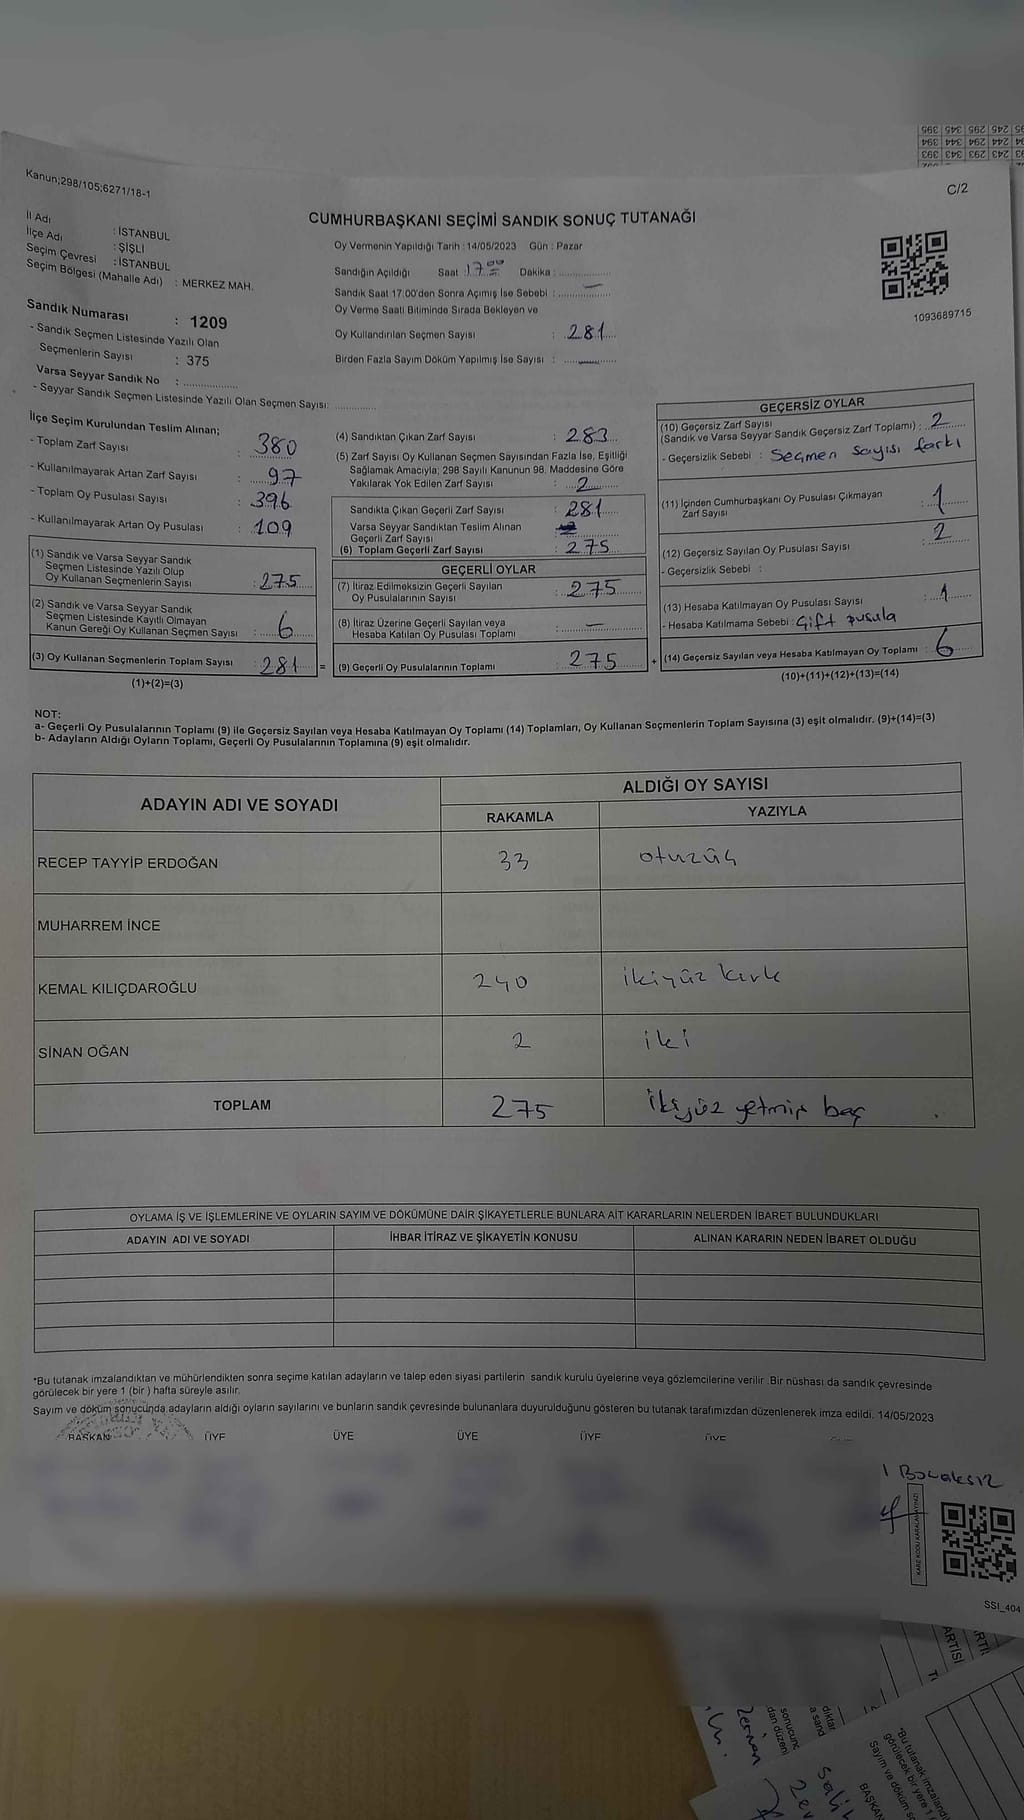 Kanun;298/105;6271/18-1
C/2
CUMHURBAŞKANI SEÇİMİ SANDIK SONUÇ TUTANAĞI
İl Adı : İSTANBUL
İlçe Adı : ŞİŞLİ
Seçim Çevresi : İSTANBUL
Seçim Bölgesi (Mahalle Adı) : MERKEZ MAH.
Sandık Numarası : 1209
- Sandık Seçmen Listesinde Yazılı Olan
Seçmenlerin Sayısı : 375
Varsa Seyyar Sandık No : ................
- Seyyar Sandık Seçmen Listesinde Yazılı Olan Seçmen Sayısı: ............
Oy Vermenin Yapıldığı Tarih : 14/05/2023 Gün : Pazar
Sandığın Açıldığı Saat : 17.00 Dakika : ................
Sandık Saat 17:00'den Sonra Açımış İse Sebebi : ................
Oy Verme Saati Bitiminde Sırada Bekleyen ve
Oy Kullandırılan Seçmen Sayısı : 281
Birden Fazla Sayım Döküm Yapılmış İse Sayısı : ................
1093689715
İlçe Seçim Kurulundan Teslim Alınan;
- Toplam Zarf Sayısı : 380
- Kullanılmayarak Artan Zarf Sayısı : 97
- Toplam Oy Pusulası Sayısı : 396
- Kullanılmayarak Artan Oy Pusulası : 109
(1) Sandık ve Varsa Seyyar Sandık
Seçmen Listesinde Yazılı Olup
Oy Kullanan Seçmenlerin Sayısı : 275
(2) Sandık ve Varsa Seyyar Sandık
Seçmen Listesinde Kayıtlı Olmayan
Kanun Gereği Oy Kullanan Seçmen Sayısı : 6
(3) Oy Kullanan Seçmenlerin Toplam Sayısı : 281 =
(1)+(2)=(3)
(4) Sandıktan Çıkan Zarf Sayısı : 283
(5) Zarf Sayısı Oy Kullanan Seçmen Sayısından Fazla İse, Eşitliği
Sağlamak Amacıyla; 298 Sayılı Kanunun 98. Maddesine Göre
Yakılarak Yok Edilen Zarf Sayısı : 2
Sandıkta Çıkan Geçerli Zarf Sayısı : 281
Varsa Seyyar Sandıktan Teslim Alınan
Geçerli Zarf Sayısı :
(6) Toplam Geçerli Zarf Sayısı : 275
GEÇERLİ OYLAR
(7) İtiraz Edilmeksizin Geçerli Sayılan
Oy Pusulalarının Sayısı : 275
(8) İtiraz Üzerine Geçerli Sayılan veya
Hesaba Katılan Oy Pusulası Toplamı : —
(9) Geçerli Oy Pusulalarının Toplamı : 275 +
GEÇERSİZ OYLAR
(10) Geçersiz Zarf Sayısı
(Sandık ve Varsa Seyyar Sandık Geçersiz Zarf Toplamı) : 2
- Geçersizlik Sebebi : Seçmen sayısı farkı
(11) İçinden Cumhurbaşkanı Oy Pusulası Çıkmayan
Zarf Sayısı : 1
(12) Geçersiz Sayılan Oy Pusulası Sayısı : 2
- Geçersizlik Sebebi :
(13) Hesaba Katılmayan Oy Pusulası Sayısı : 1
- Hesaba Katılmama Sebebi : Çift pusula
(14) Geçersiz Sayılan veya Hesaba Katılmayan Oy Toplamı : 6
(10)+(11)+(12)+(13)=(14)
NOT:
a- Geçerli Oy Pusulalarının Toplamı (9) ile Geçersiz Sayılan veya Hesaba Katılmayan Oy Toplamı (14) Toplamları, Oy Kullanan Seçmenlerin Toplam Sayısına (3) eşit olmalıdır. (9)+(14)=(3)
b- Adayların Aldığı Oyların Toplamı, Geçerli Oy Pusulalarının Toplamına (9) eşit olmalıdır.
ADAYIN ADI VE SOYADI ALDIĞI OY SAYISI
RAKAMLA YAZIYLA
RECEP TAYYİP ERDOĞAN 33 otuzüç
MUHARREM İNCE
KEMAL KILIÇDAROĞLU 240 ikiyüz kırk
SİNAN OĞAN 2 iki
TOPLAM 275 ikiyüz yetmiş beş
OYLAMA İŞ VE İŞLEMLERİNE VE OYLARIN SAYIM VE DÖKÜMÜNE DAİR ŞİKAYETLERLE BUNLARA AİT KARARLARIN NELERDEN İBARET BULUNDUKLARI
ADAYIN ADI VE SOYADI İHBAR İTİRAZ VE ŞİKAYETİN KONUSU ALINAN KARARIN NEDEN İBARET OLDUĞU
*Bu tutanak imzalandıktan ve mühürlendikten sonra seçime katılan adayların ve talep eden siyasi partilerin sandık kurulu üyelerine veya gözlemcilerine verilir .Bir nüshası da sandık çevresinde
görülecek bir yere 1 (bir ) hafta süreyle asılır.
Sayım ve döküm sonucunda adayların aldığı oyların sayılarını ve bunların sandık çevresinde bulunanlara duyurulduğunu gösteren bu tutanak tarafımızdan düzenlenerek imza edildi. 14/05/2023
BAŞKAN ÜYE ÜYE ÜYE ÜYE ÜYE
KARE KODU KARALAMAYINIZ!
SSİ_404